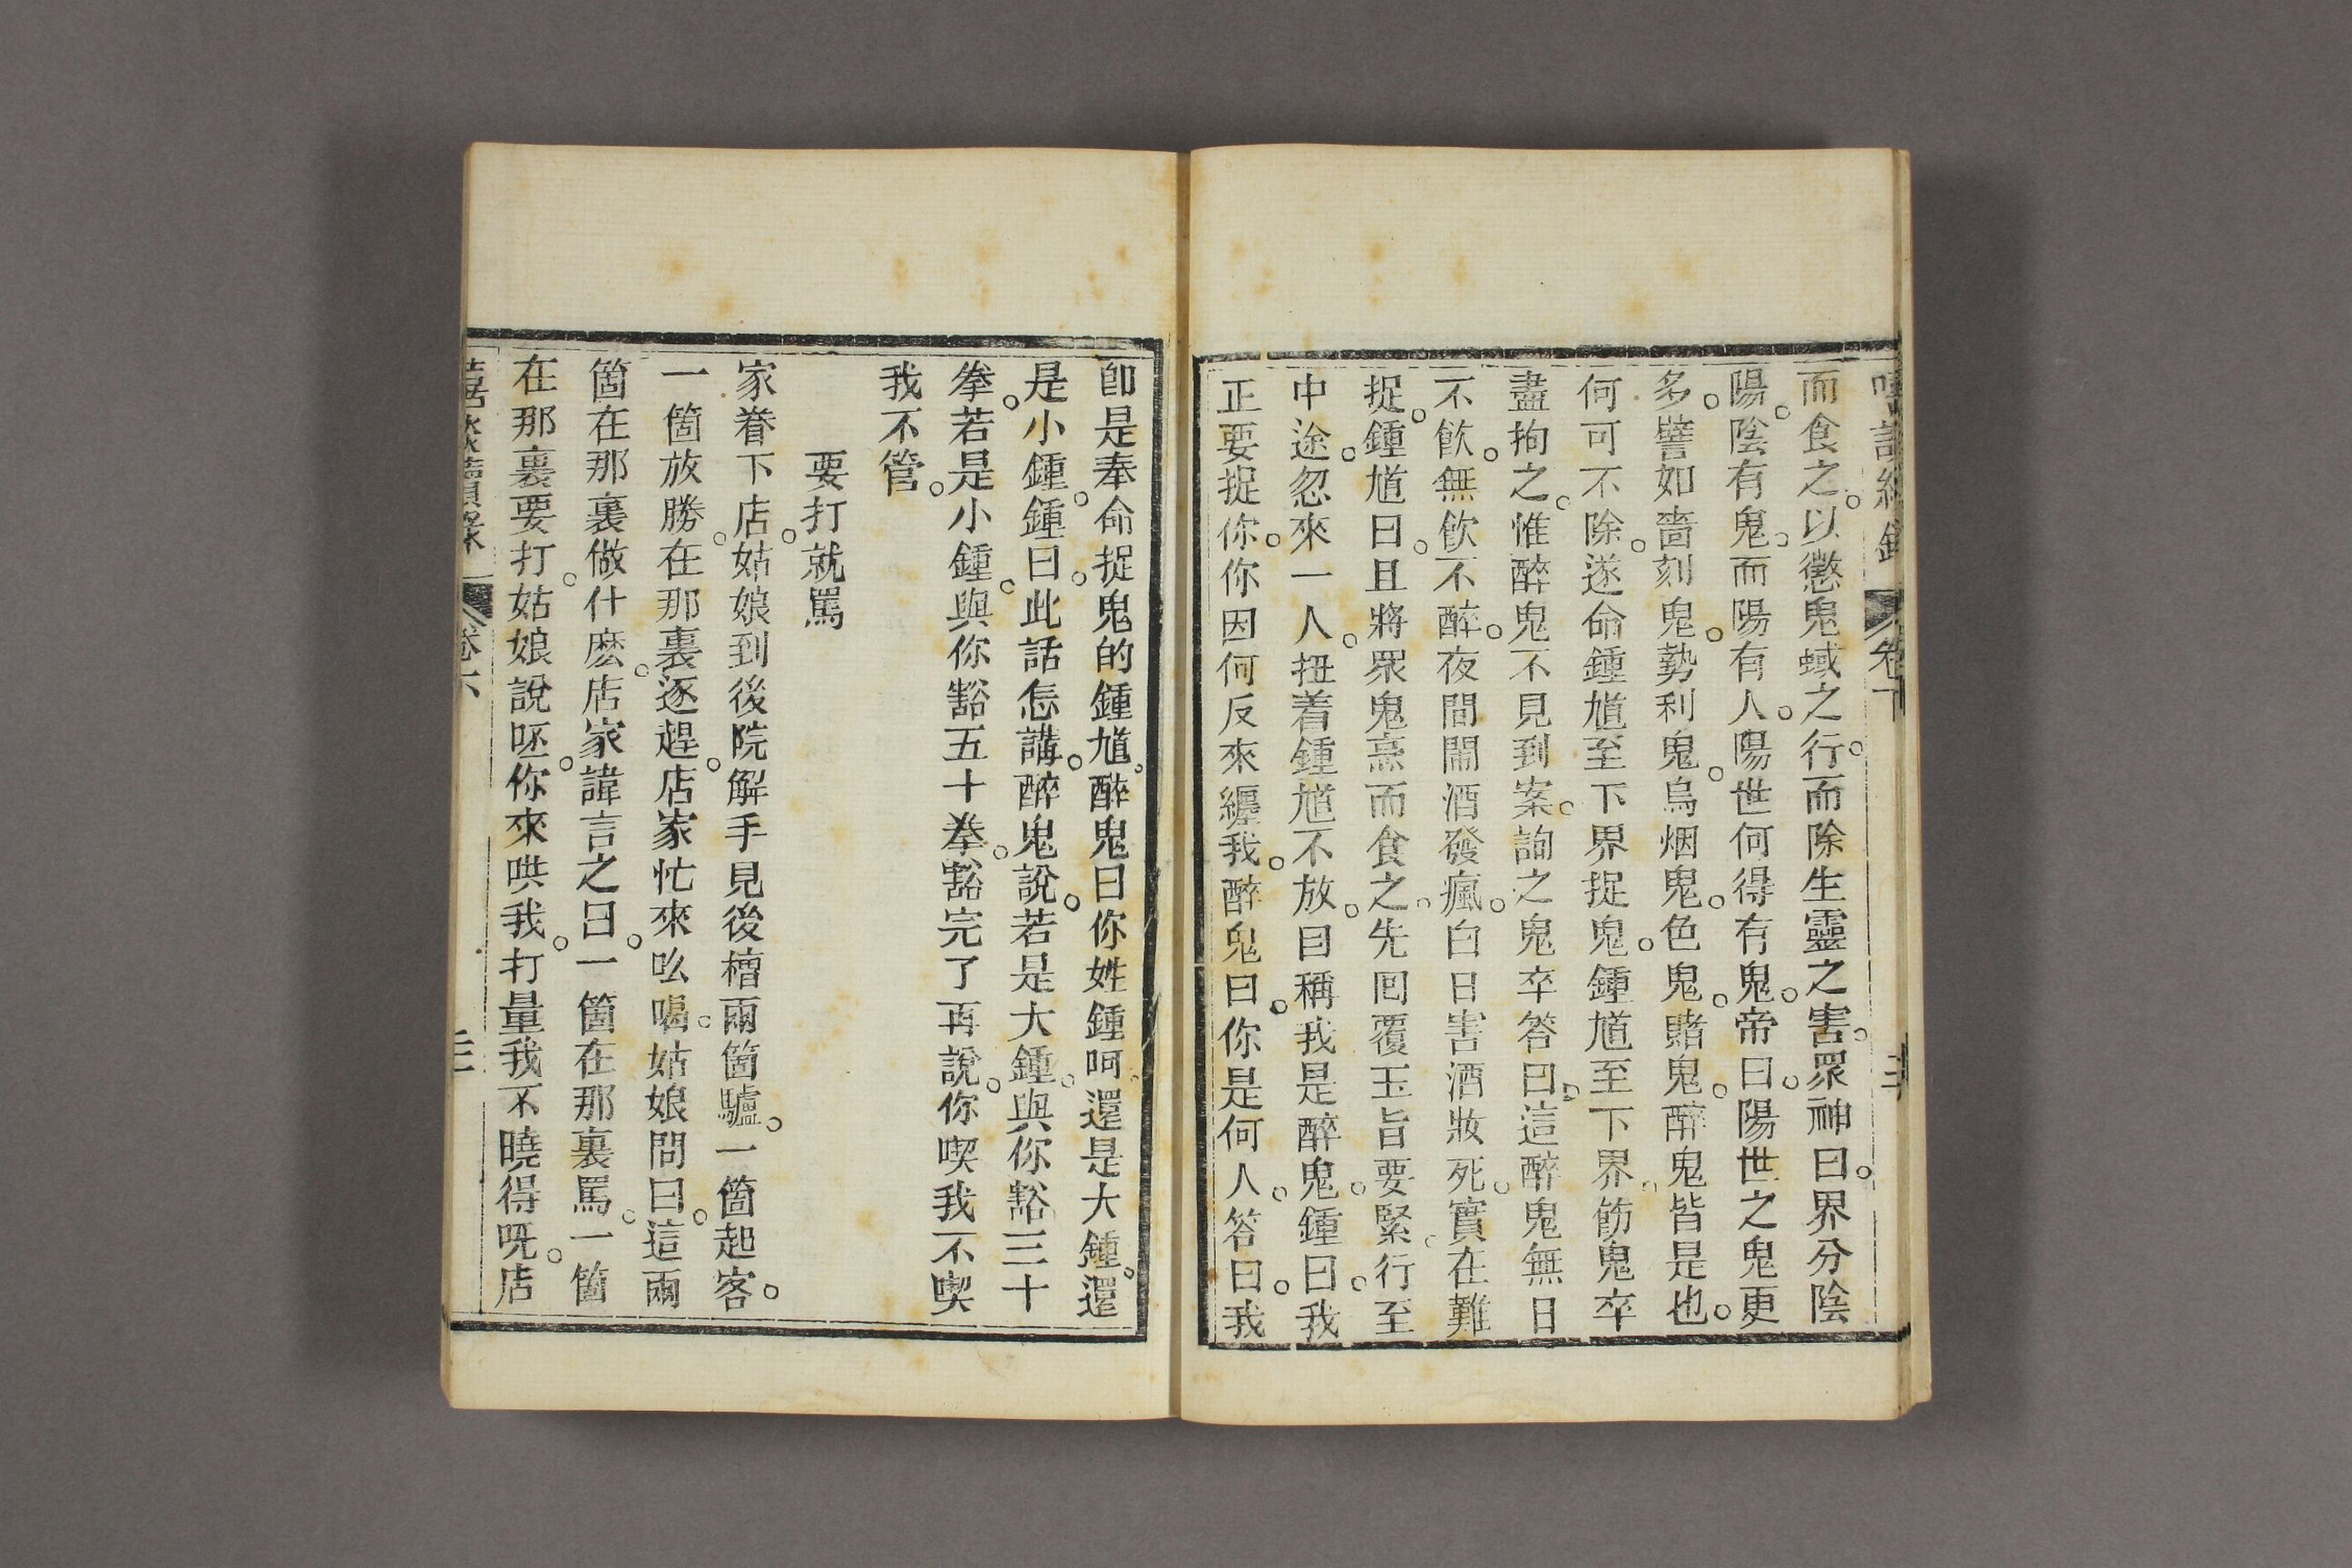 而食之。以懲鬼蜮之行。而除生靈之害。眾神曰。界分陰
陽。陰有鬼。而陽有人。陽世何得有鬼。帝曰。陽世之鬼更
多。譬如嗇刻鬼。勢利鬼。烏烟鬼。色鬼。賭鬼。醉鬼皆是也。
何可不除。遂命鍾馗至下界捉鬼。鍾馗至下界。飭鬼卒
盡拘之。惟醉鬼不見到案。詢之鬼卒。答曰。這醉鬼無日
不飲。無飲不醉。夜間鬧酒發瘋。白日害酒妝死。實在難
捉。鍾馗曰。且將眾鬼烹而食之。先囘覆玉旨要緊。行至
中途。忽來一人。扭着鍾馗不放。自稱我是醉鬼。鍾曰。我
正要捉你。你因何反來纏我。醉鬼曰。你是何人。答曰。我
卽是奉命捉鬼的鍾馗。醉鬼曰。你姓鍾呵。還是大鍾。還
是小鍾。鍾曰。此話怎講。醉鬼說。若是大鍾。與你豁三十
拳。若是小鍾。與你豁五十拳。豁完了再說。你喫我不喫
我不管。
要打就罵
家眷下店。姑娘到後院解手見後槽兩箇驢。一箇起客。
一箇放勝。在那裏逐趕。店家忙來吆喝。姑娘問曰。這兩
箇在那裏做什麽。店家諱言之曰。一箇在那裏罵。一箇
在那裏要打。姑娘說呸。你來哄我。打量我不曉得呢。店
卷六